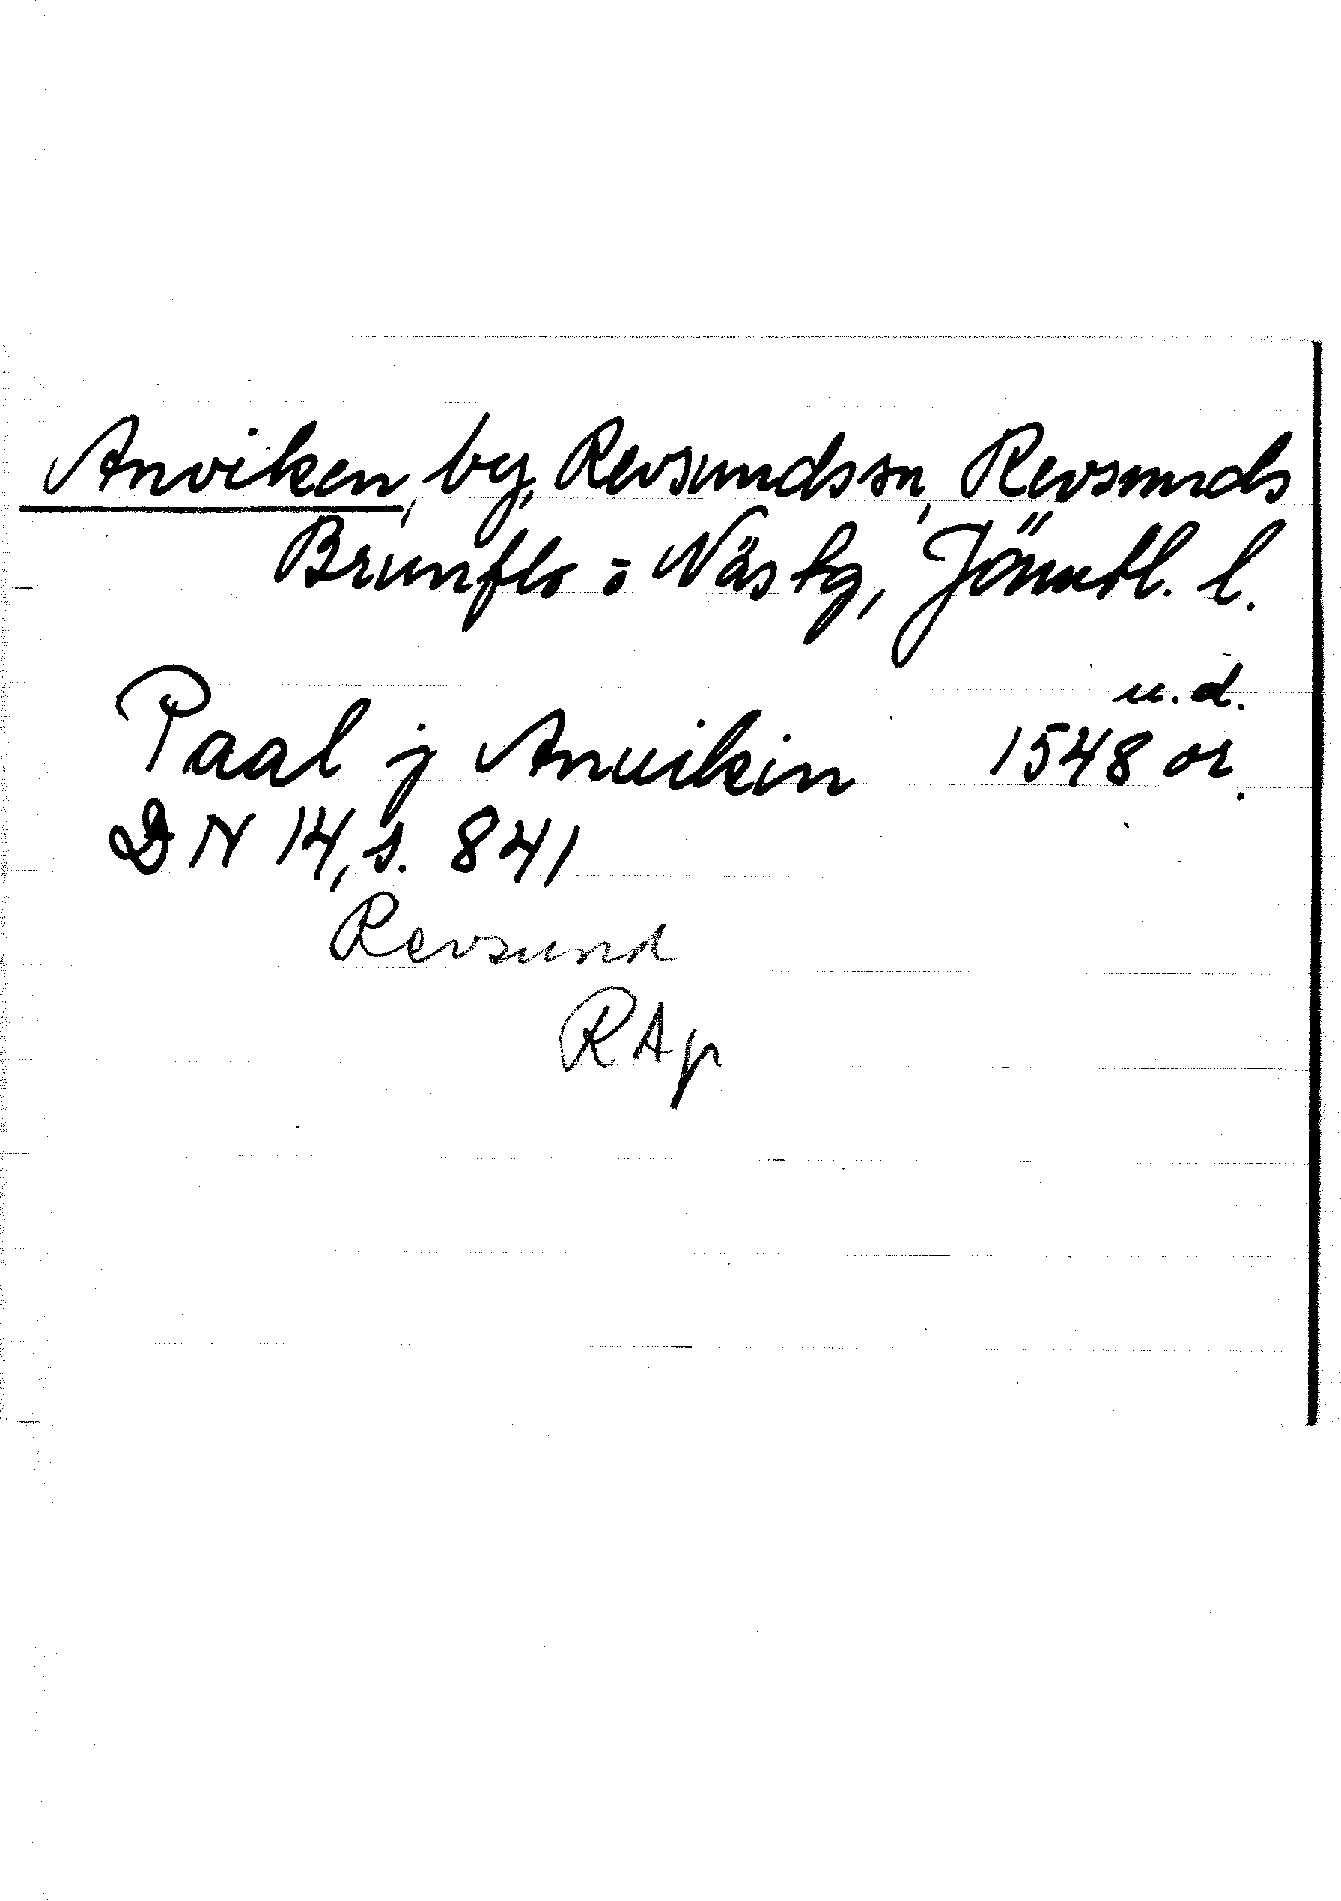 Anviken, by, Revsunds sn, Revsunds
Brunflo o Näs tg, Jämtl. l.
u.d.
Paal j Anuikin 1548 or.
DN 14, s. 841
Revsund
RAp